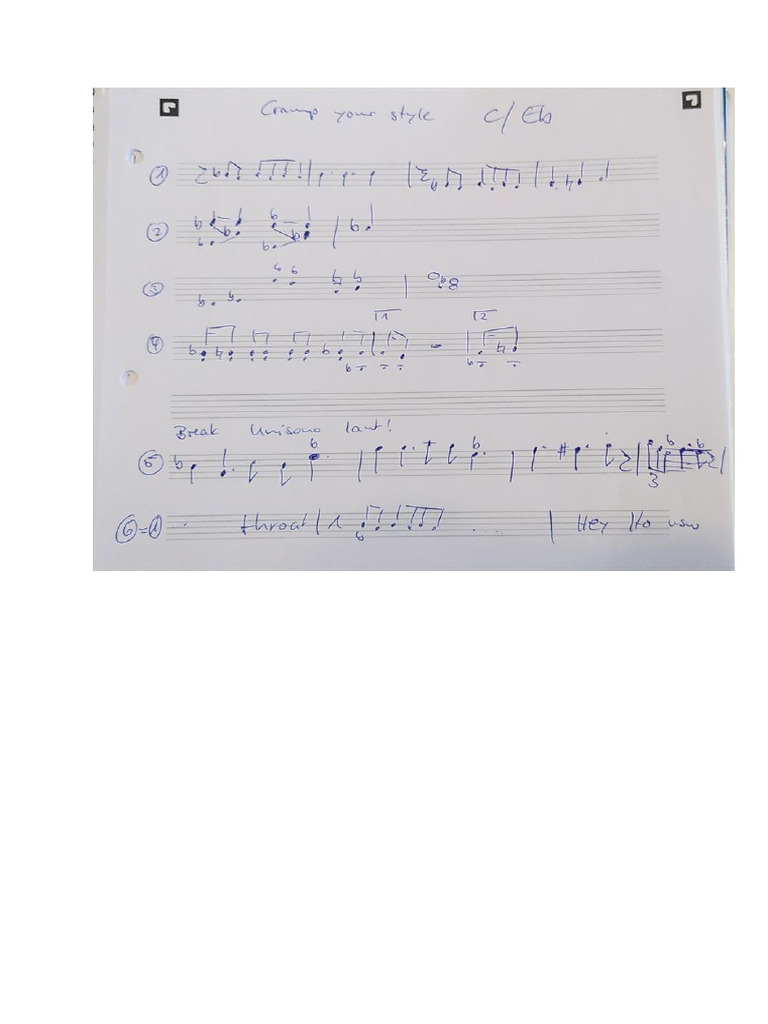 Cramp your style C/Eb
1
2
3
1 2
4
Break Unisono laut!
5
3
6 = 1 throat 1 .... Hey Ho usw
8vb